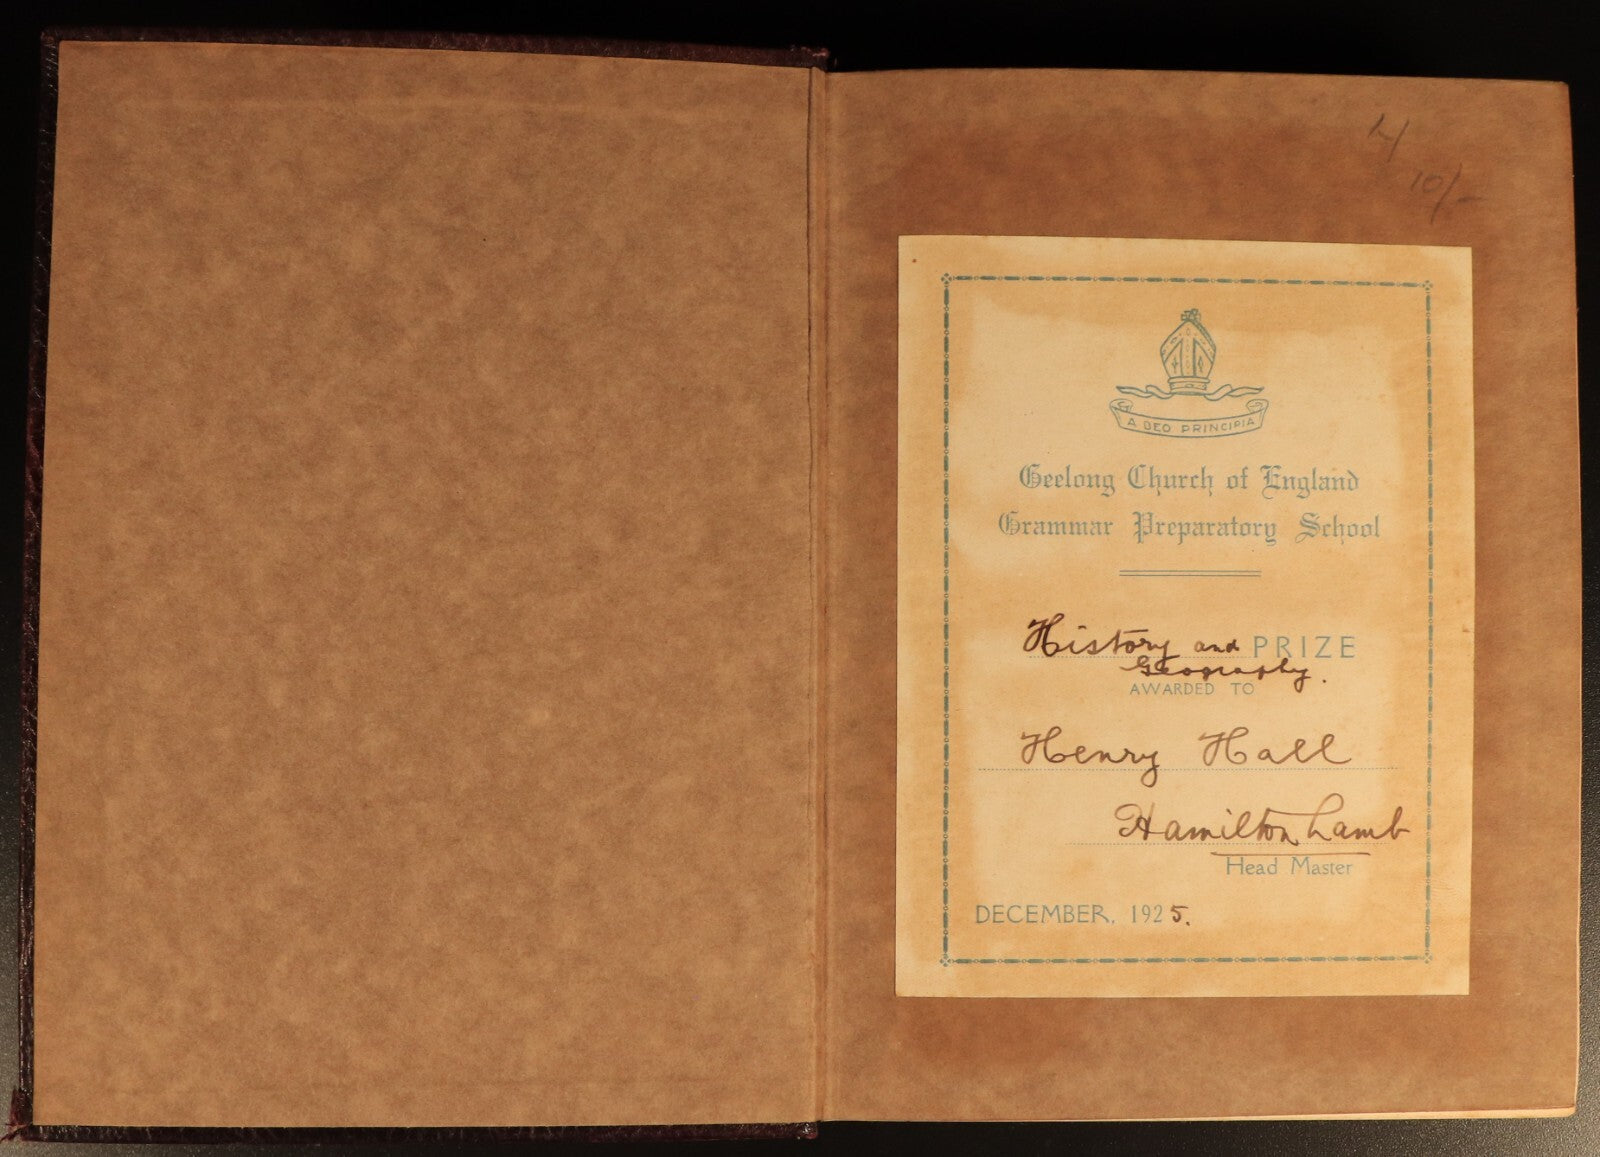 10/-
A DEO PRINCIPIA
Geelong Church of England
Grammar Preparatory School
History and PRIZE
Geography.
AWARDED TO
Henry Hall
Hamilton Lamb
Head Master
DECEMBER, 1925.